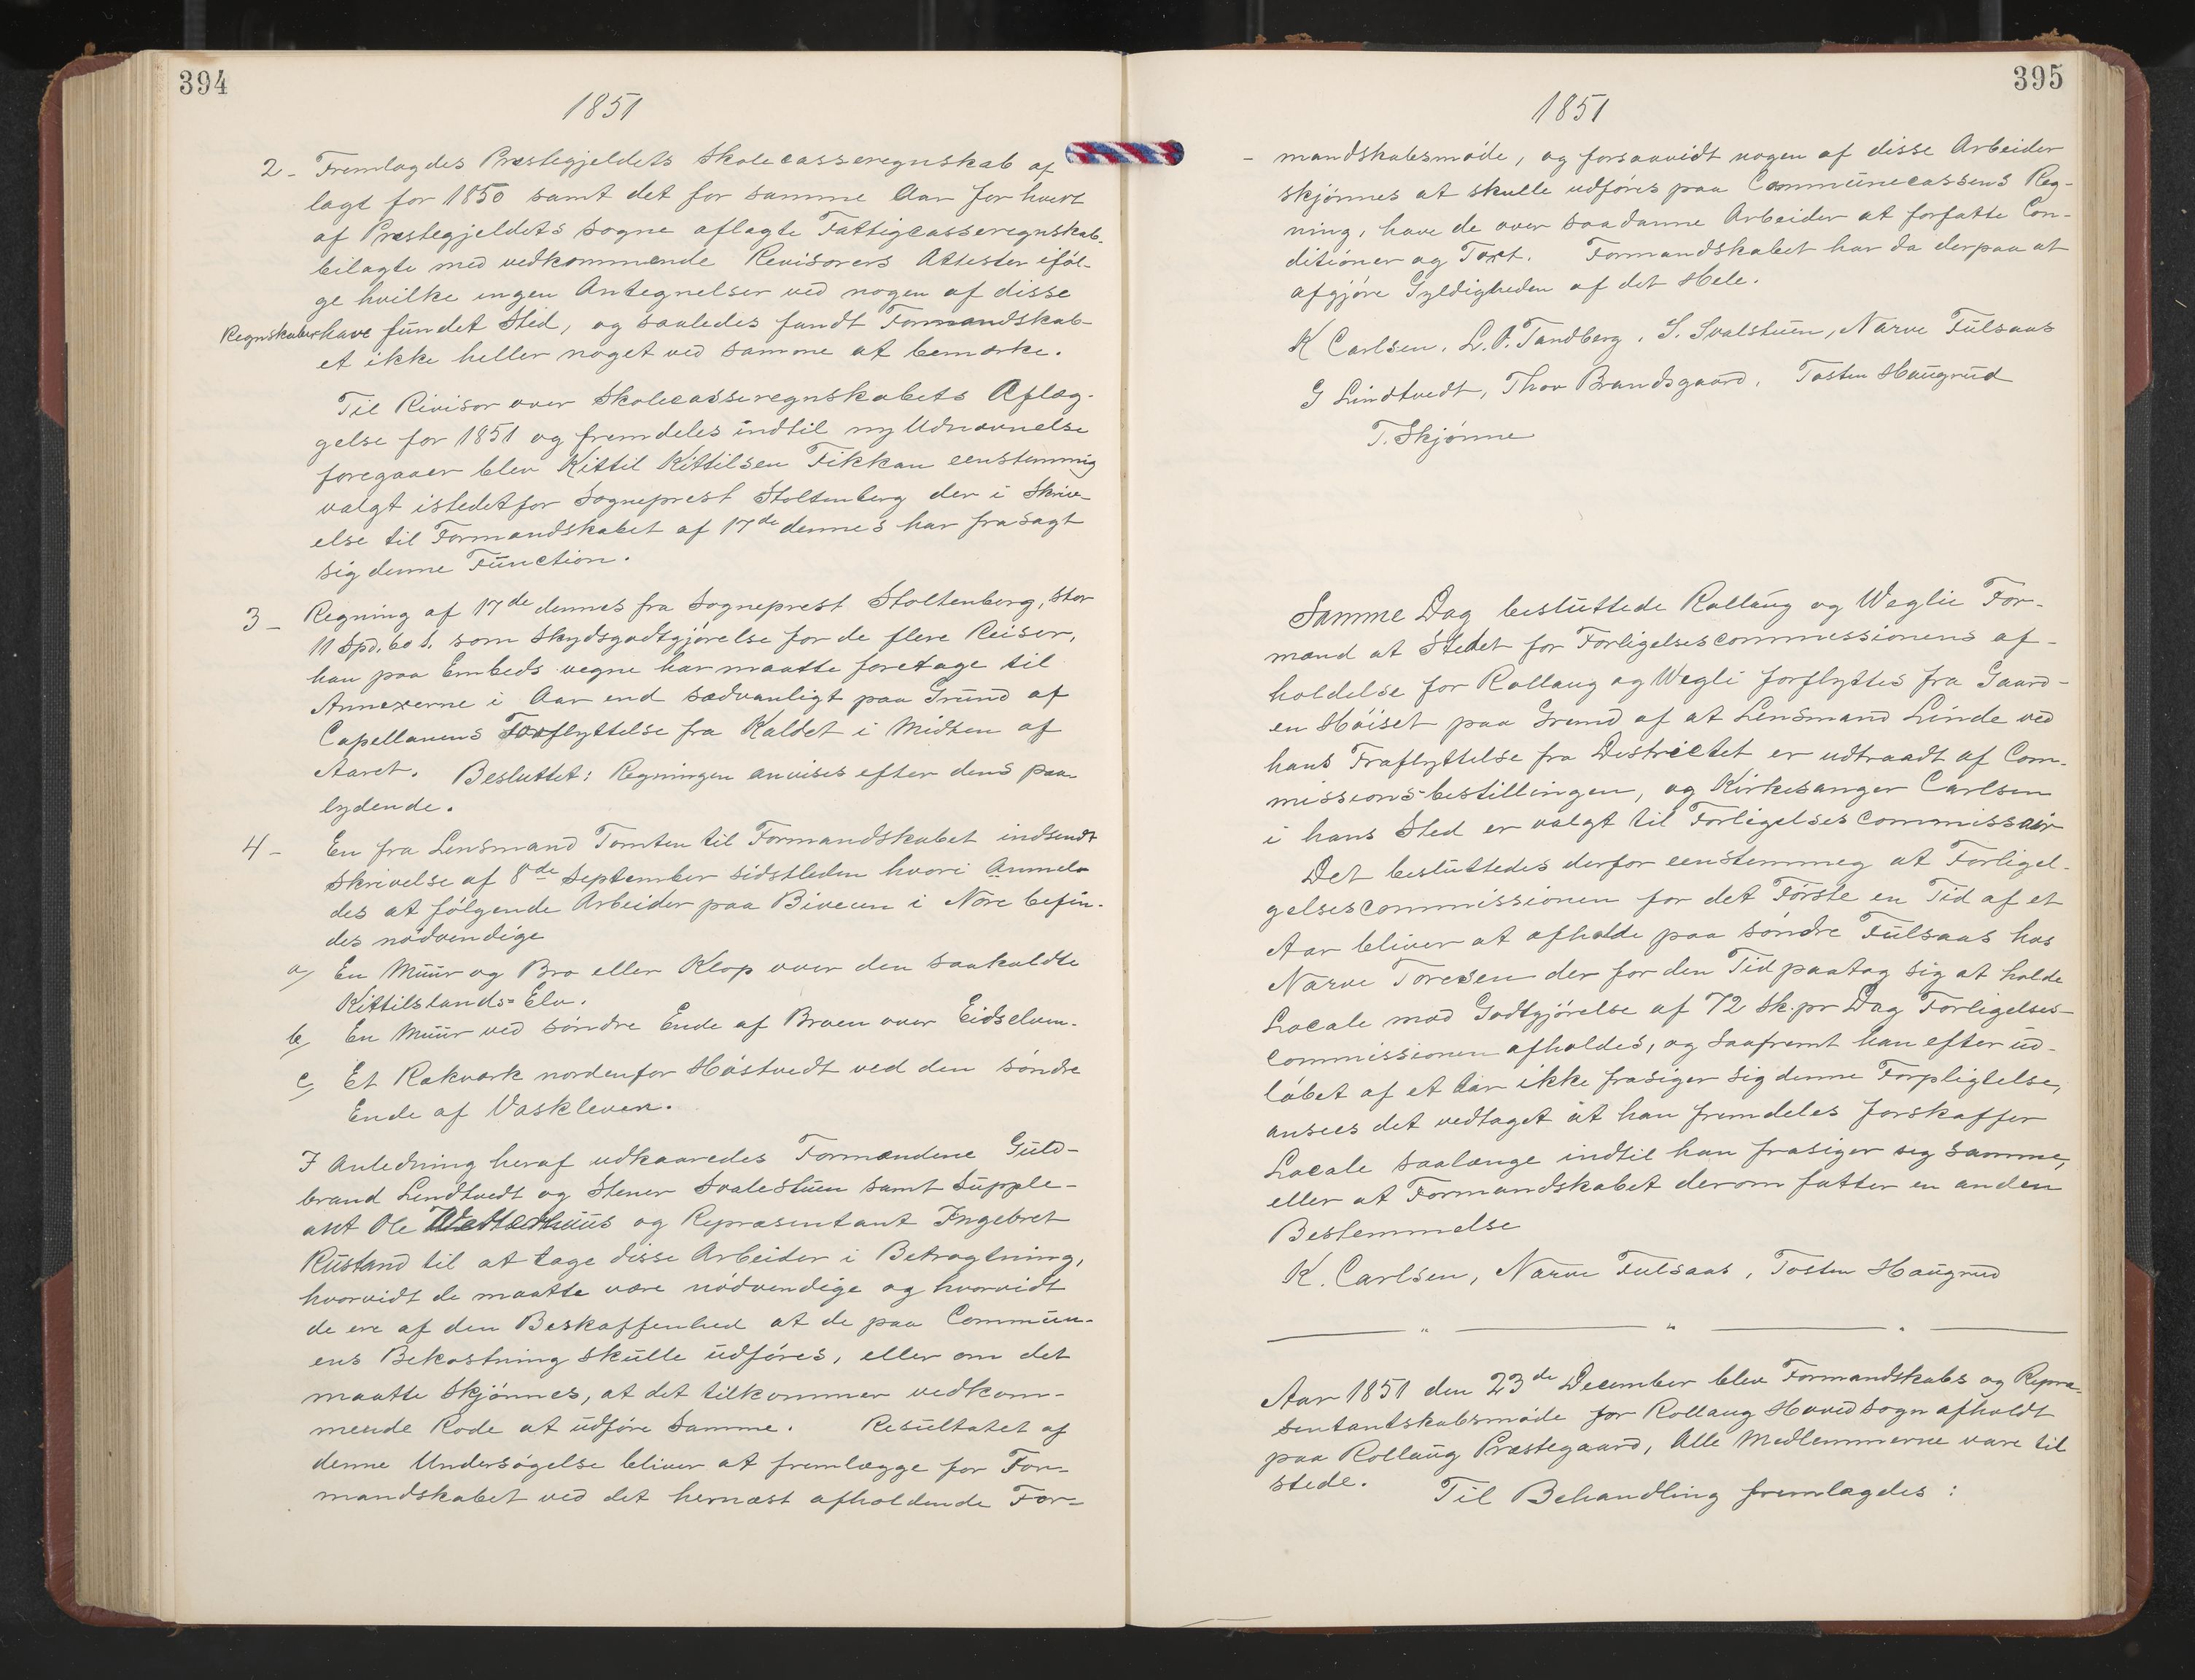 394
1851
2- Fremlagdes Præstegjeldets Skolecasseregnskab af
lagt for 1850 samt det for samme Aar for hvert
af Præstegjeldets Sogne aflagte Fattigcasseregnskab.
bilagte med vedkommende Revisorers Attester iføl-
ge hvilke ingen Antegnelser ved nogen af disse
Regnskaber have fundet Sted, og saaledes fandt Formandskab-
et ikke heller noget ved samme at bemærke.
Til Revisor over Skolecasseregnskabets Aflæg-
gelse for 1851 og fremdeles indtil ny Udnævnelse
foregaaer blev Kittil Kittilsen Fikkan eenstemmig
valgt istedetfor Sogneprest Stoltenberg der i Skriv-
else til Formandskabet af 17de dennes har frasagt
sig denne Function.
3- Regning af 17de dennes fra Sogneprest Stoltenberg, stor
11 Spd. 60 s. som Skydsgodtgjørelse for de flere Reiser,
han paa Embeds vegne har maatte foretage til
Annexerne i Aar end sædvanligt paa Grund af
Capellanens Forflyttelse fra Kaldet i Midten af
Aaret. Besluttet: Regningen anvises efter dens paa-
lydende.
4- En fra Lensmand Tomten til Formandskabet indsendt
Skrivelse af 8de September sidstleden hvori Anmel-
des at følgende Arbeider paa Biveien i Nore befin-
des nødvendige
a) En Muur og Bro eller Klop over den saakaldte
Kittilslands-Elv.
b) En Muur ved søndre Ende af Broen over Eidselven.
c) Et Rækværk nordenfor Høstvedt ved den søndre
Ende af Vaskleven.
I Anledning heraf udkaaredes Formændene Guld-
brand Lindtvedt og Stener Svalestuen samt Supple-
ant Ole Wetterhuus og Repræsentant Ingebret
Rustand til at tage disse Arbeider i Betragtning,
hvorvidt de maatte være nødvendige og hvorvidt
de ere af den Beskaffenhed at de paa Commun-
ens Bekostning skulle udføres, eller om det
maatte skjønnes, at det tilkommer vedkom-
mende Rode at udføre Samme. Resultatet af
denne Undersøgelse bliver at fremlægge for For-
mandskabet ved det hernæst afholdende For-
395
1851
- mandskabsmøde, og forsaavidt nogen af disse Arbeider
skjønnes at skulle udføres paa Communecassens Reg-
ning, have de over saadanne Arbeider at forfatte Con-
ditioner og Taxt. Formandskabet har da derpaa at
afgjøre Gyldigheden af det Hele.
K Carlsen. L. P. Tandberg. S. Svalstuen, Narve Fulsaas
G Lindtvedt, Thor Brandsgaard, Tosten Haugrud
T. Skjønne
Samme Dag besluttede Rollaug og Weglie For-
mænd at Stedet for Forligelsescommissionens af-
holdelse for Rollaug og Wegli forflyttes fra Gaard-
en Høiset paa Grund af at Lensmand Linde ved
hans Fraflyttelse fra Districtet er udtraadt af Com-
missions-bestillingen, og Kirkesanger Carlsen
i hans Sted er valgt til Forligelses Commissair
Det besluttedes derfor eenstemmeg at Forligel-
gelsescommissionen for det Første en Tid af et
Aar bliver at afholde paa søndre Fulsaas hos
Narve Toresen der for den Tid paatog sig at holde
Locale mod Godtgjørelse af 72 Sk. pr Dag Forligelses-
commissionen afholdes, og Saafremt han efter ud-
løbet af et Aar ikke frasiger sig denne Forpligtelse,
ansees det vedtaget at han fremdeles forskaffer
Locale saalænge indtil han frasiger seg Samme,
eller at Formandskabet derom fatter en anden
Bestemmelse
K. Carlsen, Narve Fulsaas, Tosten Haugrud
Aar 1851 den 23de December blev Formandskabs og Repræ-
sentantskabsmøde for Rollaug Hovedsogn afholdt
paa Rollaug Præstegaard, Alle Medlemmerne vare til
stede. Til Behandling fremlagdes :